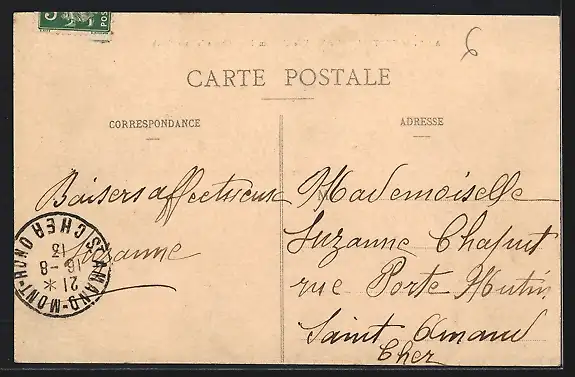 CARTE POSTALE
CORRESPONDANCE
Baisers affectueux
Suzanne
ADRESSE
Mademoiselle
Suzanne Chaput
rue Porte Mutin
Saint Amand
Cher
ST AMAND-MONT-ROND
CHER
21 *
16-8
13
5
POS
6